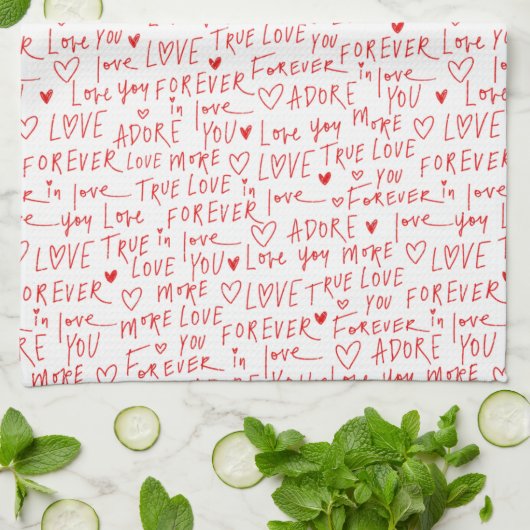 Love YOU LOVE TRUE LOVE YOU FOREVER Love YOU
love YOU FOREVER FOREVER in love
Love you in love ADORE YOU
LOVE ADORE YOU Love you MORE LOVE
FOREVER LOVE MORE LOVE TRUE LOVE FOREVER
in love TRUE LOVE in love YOU
you Love FOREVER ADORE love you
LOVE TRUE in love Love you MORE LOVE
LOVE YOU TRUE LOVE
FOREVER MORE LOVE LOVE YOU FOREVER
in love MORE LOVE FOREVER FOREVER in love
ADORE YOU YOU in love ADORE YOU
MORE FOREVER Love you MORE